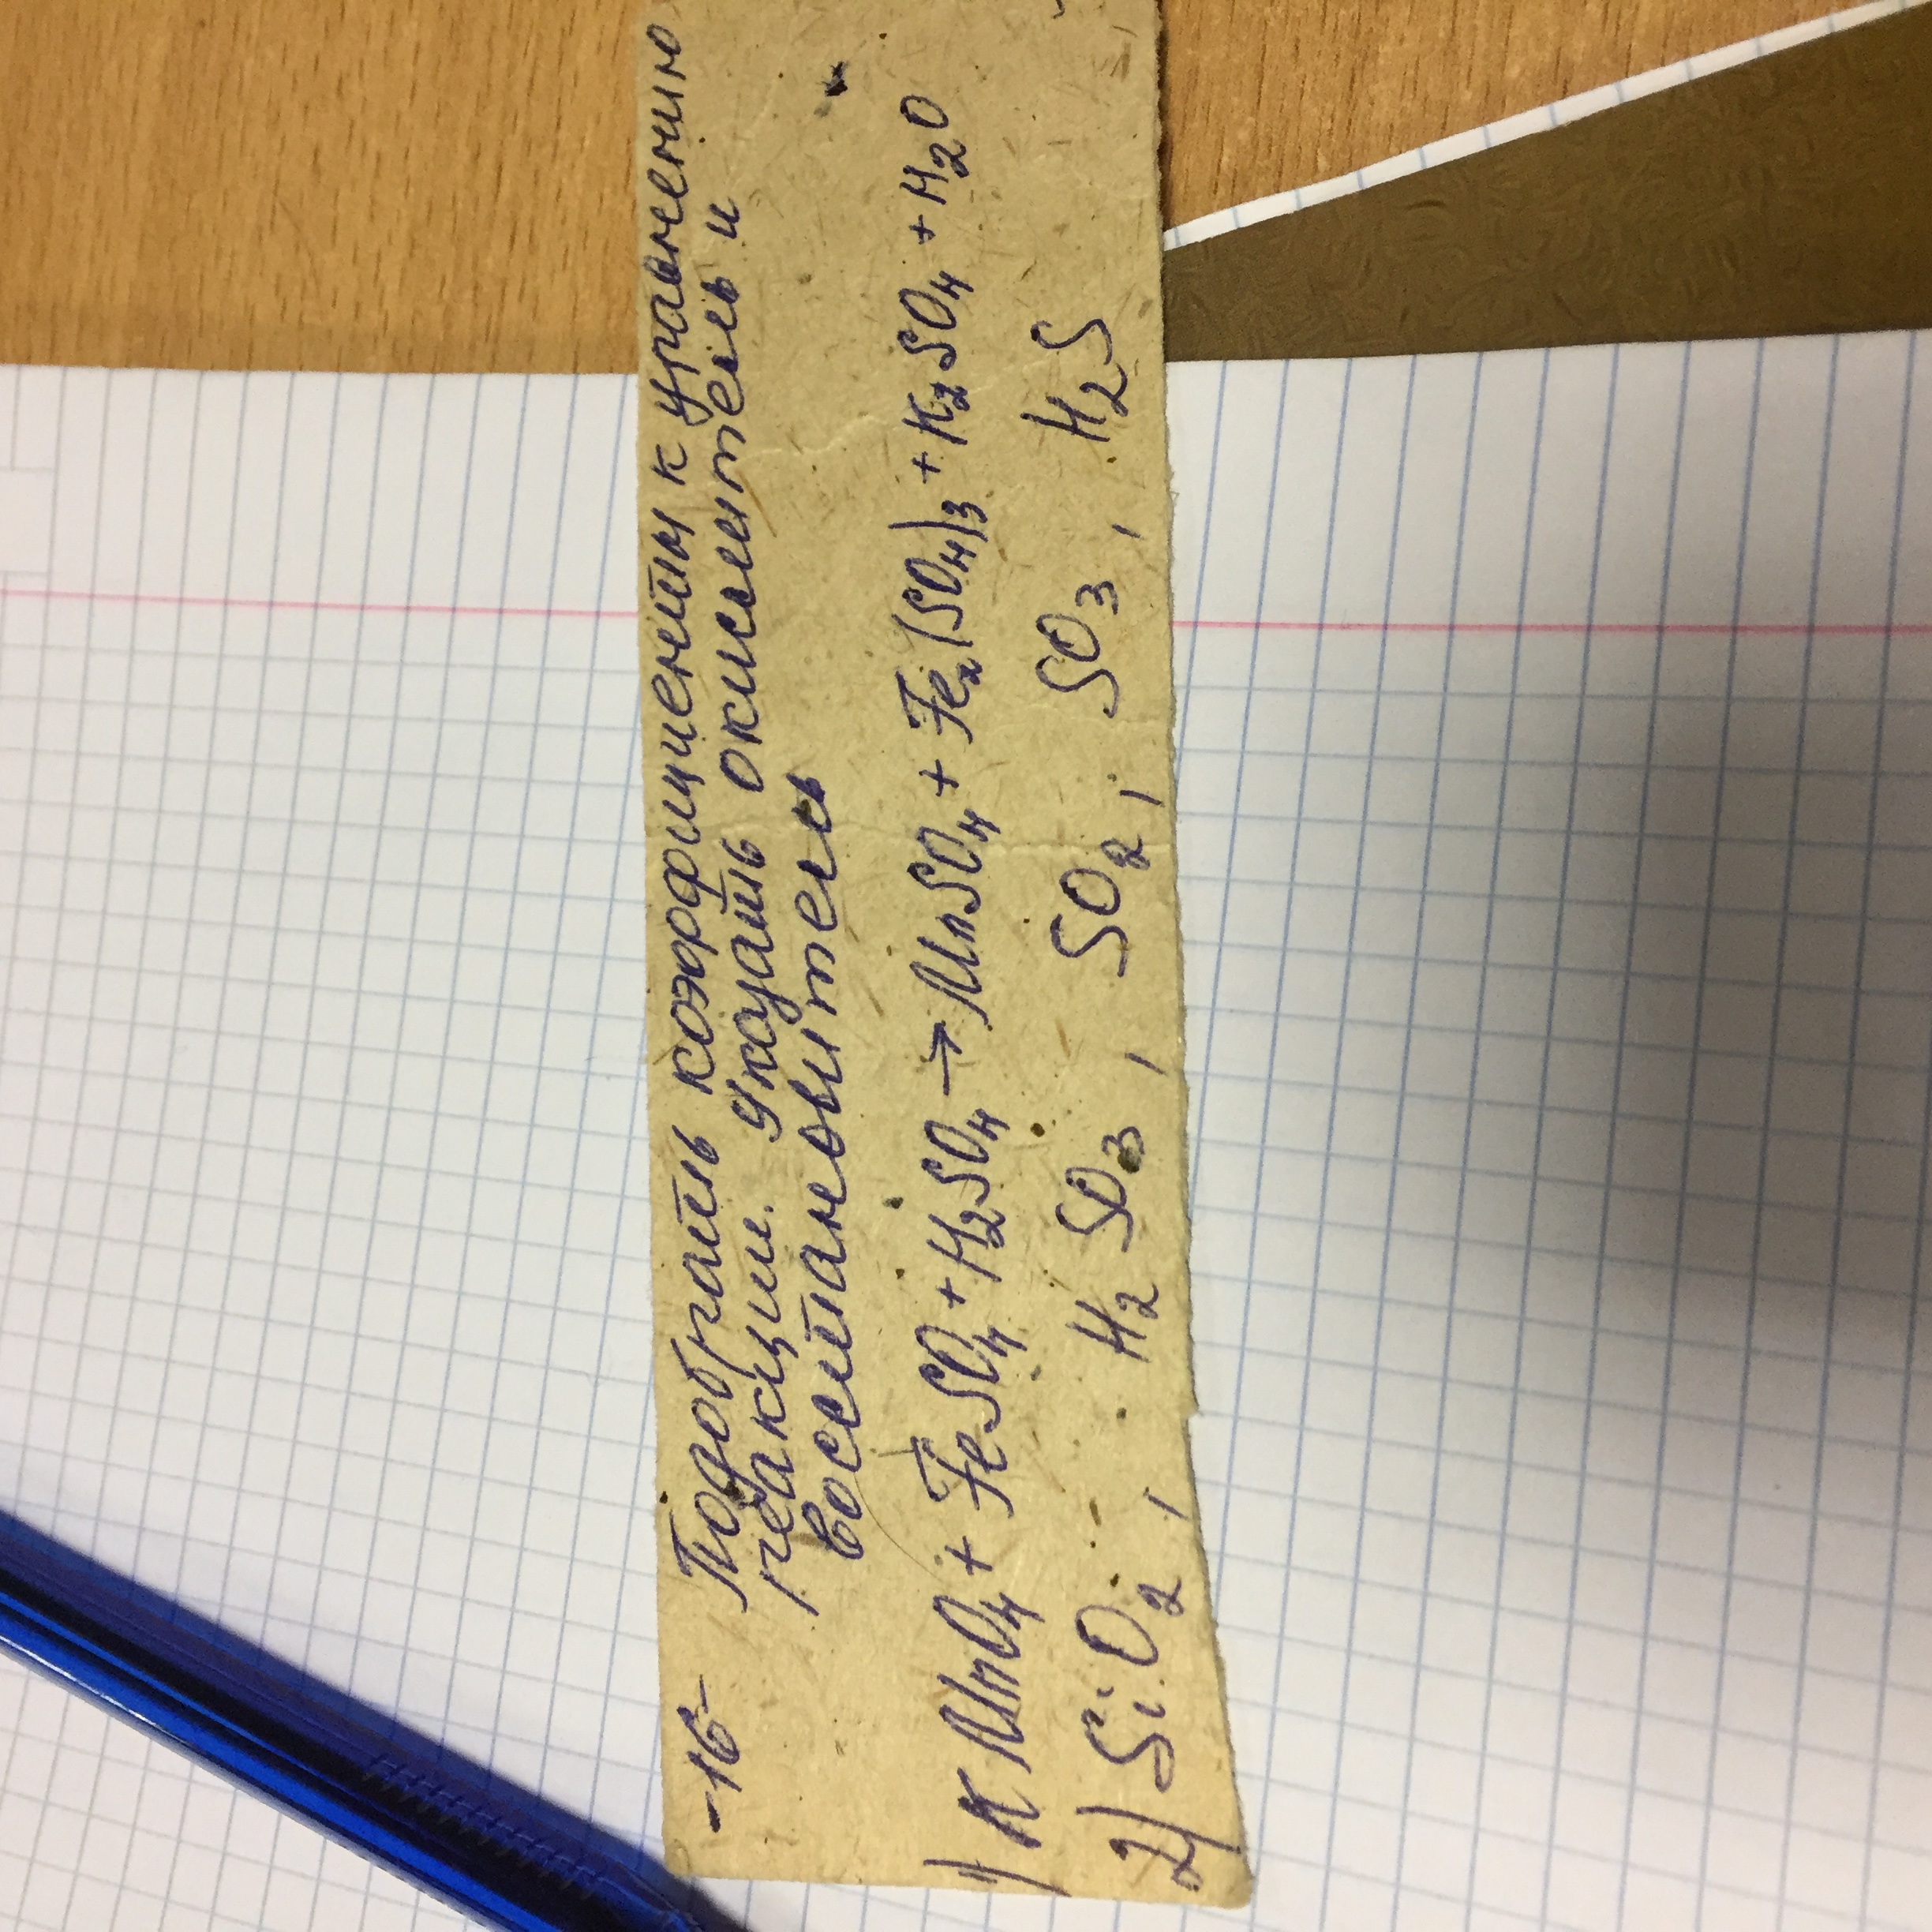 -16- Подобрать коэффициенты к уравнению
реакции. Указать окислитель и
восстановитель
1) KMnO₄ + FeSO₄ + H₂SO₄ → MnSO₄ + Fe₂(SO₄)₃ + K₂SO₄ + H₂O
2) SiO₂, H₂SO₃, SO₂, SO₃, H₂S